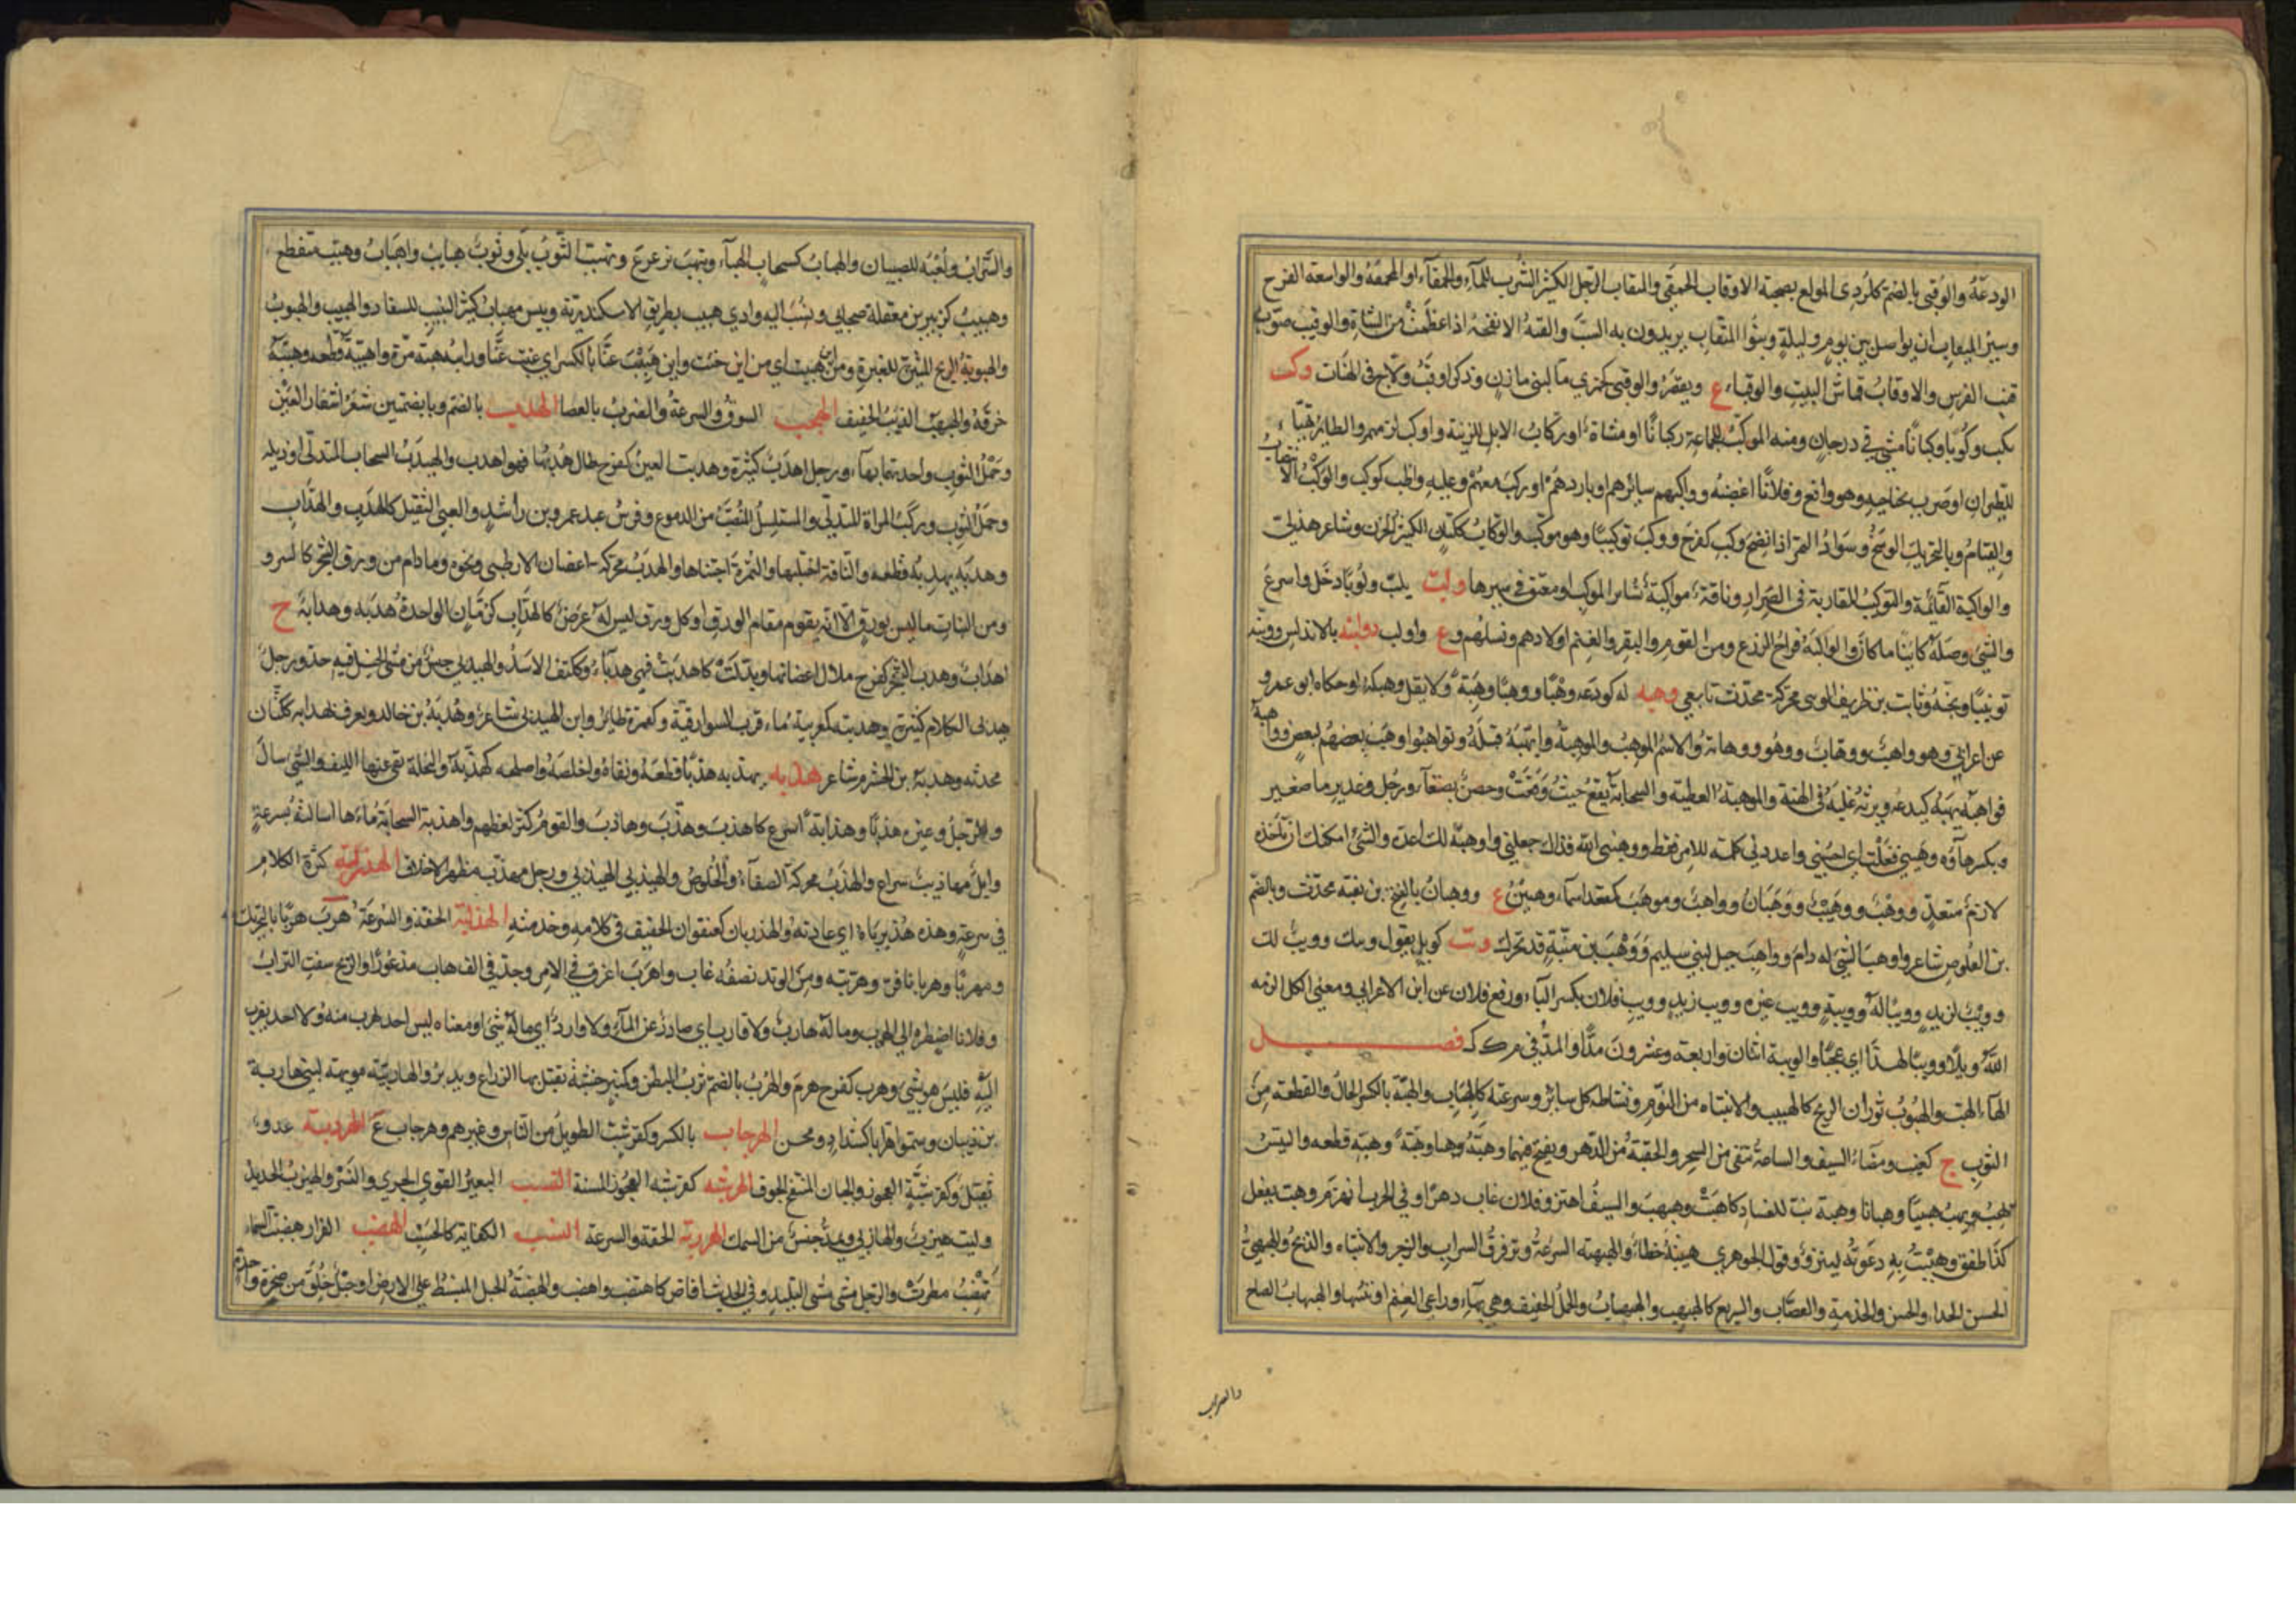 الودعة والوقبى بالضم كالكردي المولع بصحبة الاوقاب الحمقى والميقاب الرجل الكثير الشرب للمآء والحمقآء او المحمقة والواسعة الفرج
وسير الميقاب ان يواصل بين يوم وليلة وبنوا الميقاب يريدون به السب والقبة الانفحة اذا عظمت من الشاة والوقيب صوت
قنب الفرس والاوقاب قماش البيت والوقباء ع ويقصر والوقبى كجمزي مآ لبني مازن وذكر اوقب ولاج في الهنات وكب
يكب وكوبا وكبانا مشى في درجان ومنه الموكب للجماعة ركبانا او مشاة او ركاب الابل للزينة واوكب لزمهم والطاير تهيأ
للطيران او ضرب بجناحيه وهو واقع وفلانا اغضبه وواكبهم سايرهم او بادرهم او ركب معهم وعليه واظب كوكب والوكب الانتصاب
والقيام وبالتحريك الوسخ وسواد التمر اذا نضج وكب كفرح ووكب توكيبا وهو موكب والوكاب ككتان الكثير الحزن وشاعر هذلي
والواكبة القائمة والتوكيب المقاربة في الصرار وناقة مواكبة تساير الموكب او معنق في سيرها ولب يلب ولوبا دخل واسرع
والشئ وصله كائنا ما كان والوالبة فراخ الزرع ومن القوم والبقر والغنم اولادهم ونسلهم وع واولب دولبة بالاندلس وونبه
توبيبا وبخه وثابت بن طريف الونبي محركة محدث تابعي وهبه له كودعه وهبا ووهبا وهبة ولا يقل وهبكه او حكاه ابو عمرو
عن اعرابي وهو واهب ووهاب ووهوب ووهابة والاسم الموهب والموهبة واتهبه قبله وتواهبوا وهب بعضهم لبعض وواهبه
فواهبه يهبه كيدعه ويرثه غلبه في الهبة والموهبة العطية والسحابة تقع حيث وقعت وحصن بصنعآ ورجل وغدير ما صغير
وبكسر هاؤه وهبني فعلت اي احسبني واعددني كلمة للامر فقط ووهبني الله فداك جعلني واوهبه لك اعده والشئ امكنك ان تأخذه
لازم متعد ووهب ووهيب ووهبان وواهب وموهب كمقعد اسمآء وهبين ع ووهبان بالفتح بن بقية محدث وبالضم
بن القلوص شاعر واوهب الشئ له دام وواهب جبل لبني سليم ووهب بن منبه قد تحرك ويب كويل يقول ويبك وويب لك
وويب لزيد وويبا له وويبة وويب غيره وويب زيد وويب فلان بكسر البآء ورفع فلان عن ابن الاعرابي ومعنى الكل الزمه
الله ويلا وويبا لهذا اي عجبا والويبة اثنان او اربعة وعشرون مدا والمد في م ك ك فصل
الهآء الهب والهبوب ثوران الريح كالهبيب والانتباه من النوم ونشاط كل سائر وسرعته كالهباب والهبة بالكسر الحال والقطعة من
الثوب ج كعنب ومضاء السيف والساعة تبقى من السحر والحقبة من الدهر ويفتح فيهما وهبه وهبا وهبة وهبه قطعه والتيس
يهب ويهب هبيبا وهبابا وهبة نب للفساد كاهتب وهبهب والسيف اهتز وفلان غاب دهرا وفي الحرب انهزم وهب يفعل
كذا طفق وهببت به دعوته لينزو وقول الجوهري هببته خطاء والهبهبة السرعة وترقرق السراب والزجر والانتباه والذبح والهبهبي
الحسن الحداء والحسن والخدمة والقصاب والسريع كالهبهب والهبهاب والجمل الخفيف وهي بهآء وراعي الغنم او تيسها والهبهاب الصياح
والسراب
والسراب ولعبة للصبيان والهباب كسحاب الهبآء وتهبهب تزعزع وتهبب الثوب بلى وثوب هبايب واهباب وهبب متقطع
وهبيب كزبير بن مغفلة صحابي ونسب اليه وادي هبيب بطريق الاسكندرية وتيس مهباب كثير النبيب للسفاد والهبيب والهبوب
والهبوبة الريح المثيرة للغبرة ومن اين هببت اي من اين جئت واين هببت عنا بالكسر اي غبت عنا ورايته هبة مرة واهتبه قطعه وهببه
خرقه والهبهب الذيب الخفيف الهجب السوق والسرعة والضرب بالعصا الهدب بالضم وبضمتين شعر اشفار العين
وخمل الثوب واحدتهما بهآء ورجل اهدب كثيره وهدبت العين كفرح طال هدبها فهو اهدب والهيدب السحاب المتدلى او ذيله
وخمل الثوب وركب المراة المتدلي والمتسلسل المنصب من الدموع وفرس عبد عمرو بن راشد والعيي الثقيل كالهدب والهداب
وهدبه يهدبه قطعه والناقة احتلبها والثمرة اجتناها والهدب محركة اغصان الارطى ونحوه وما دام من ورق الشجر كالسرو
ومن النبات ما ليس بورق الا انه يقوم مقام الورق او كل ورق ليس له عرض كالهداب كرمان الواحدة هدبة وهدابة ج
اهداب وهدب الشجر كفرح طال اغصانها وتدلت كاهدبت فهي هدبآء وككتف الاسد والهيدبى جنس من مشى الخيل فيه جد ورجل
هدبى الكلام كثيره وهدبة كعربية مآء قرب السوارقية وكهمزة طاير وابن الهيدبى شاعر وهدبة بن خالد ويعرف بهداب ككتان
محدثه وهدبة بن الخشرم شاعر هذبه يهذبه هذبا قطعه ونقاه واخلصه واصلحه كهذبه والنخلة نقى عنها الليف والشئ سال
والرجل وغيره هذبا وهذابة اسرع كاهذب وهذب وهاذب والقوم كثر لغطهم واهذبت السحابة ماءها اسالته بسرعة
وابل مهاذيب سراع والهذب محركة الصفآء والخلوص والهيذبى الهيدبى ورجل مهذب مطهر الاخلاق الهذربة كثرة الكلام
في سرعة وهذه هذيرباه اي عادته والهذربان كعنفوان الخفيف في كلامه وخدمته الهذلبة الخفة والسرعة هرب هربا بالتحريك
ومهربا وهربانا فر وهربه ومن الوتد نصفه غاب واهرب اغرق في الامر وجد في الذهاب مذعورا والريح سفت التراب
وفلانا اضطره الى الهرب وما له هارب ولا قارب اي صادر عن المآء ولا وارد اي ما له شئ او معناه ليس احد يهرب منه ولا احد يقرب
اليه فليس هو بشئ وهرب كفرح هرم والهرب بالضم ثرب البطن وكمنبر خشبة يقبل بها الزراع ويدبر والهاربية مويهة لبني هاربة
بن ذبيان وسموا هرابا كشداد ومحسن الهرجاب بالكسر وكقرشب الطويل من الناس وغيرهم وهرجاب ع الهردبة عدو
ثقيل وكقرشبة العجوز والجبان المنتفخ الجوف الهرشبة كقرشبة العجوز المسنة الهزب البعير القوي الجري والنسر والهيزب الحديد
وليث هيزب والهازبى ويمد جنس من السمك الهزربة الخفة والسرعة الهسب الكفاية كالحسب الهضب الفرار وهضبت السماء
تهضب مطرت والرجل مشى مشي البليد وفي الحديث افاض كاهتضب واهضب والهضبة الجبل المنبسط على الارض او جبل خلق من صخرة واحدة